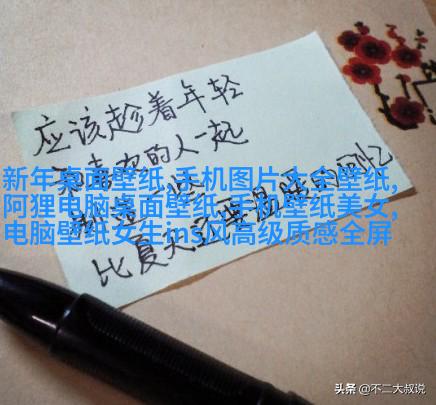 应该趁着年轻
和喜欢的人一起
制造一些
比夏天还要温暖的回忆
新年桌面壁纸,手机图片大全壁纸,
阿狸电脑桌面壁纸,手机壁纸美女,
电脑壁纸女生ins风高级质感全屏
头条 @不二大叔说